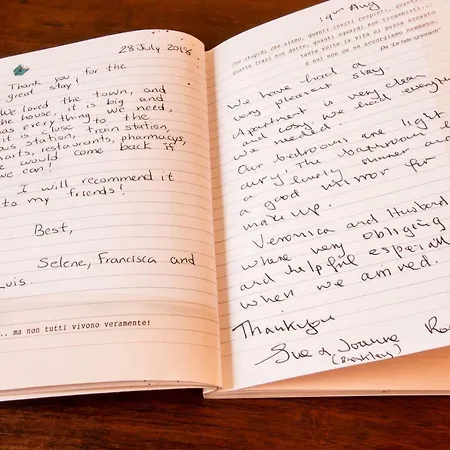 28 July 2018
Thank you, for the
great stay,
We loved the town, and
the house, it is big and
has everything to the
we need,
close
station, train station,
marts, restaurants, pharmacys,
we would come back if
we can!
I will recommend it
to my friends!
Best,
Selene, Francisca and
Luis.
... ma non tutti vivono veramente!
19th Aug
Che stupidi che siamo, quanti inviti respinti, quanti
quante frasi non dette, quanti sguardi non ricambiati...
tante volte la vita ci passa accanto
e noi non ce ne accorgiamo nemmeno.
Da "Le fate ignoranti"
We have had a
very pleasant stay.
Apartment is very clean
and cosy we had everything
we needed.
Our bedroom are light
airy. The bathroom
a lovely and
a good mirror for
make up.
Veronica and Husband
where very obliging
and helpful especially
when we arrived.
Thankyou
Sue & Joanne